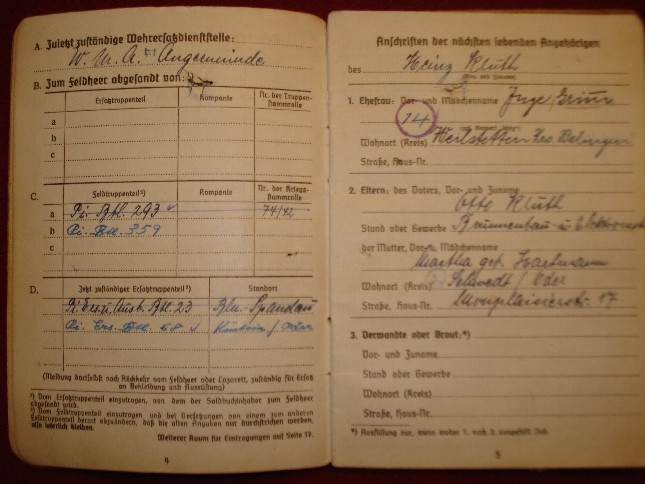 A. Zuletzt zuständige Wehrersatzdienststelle:
W. M. A. Angermünde
B. Zum Feldheer abgesandt von:
Ersatztruppenteil Kompanie Nr. der Truppenstammrolle
a
b
c
C. Feldtruppenteil²) Kompanie Nr. der Kriegsstammrolle
a Pi. Btl. 293 74/42
b Pi. Btl. 359
c
D. Jetzt zuständiger Ersatztruppenteil²) Standort
Pi. Ers. u. Ausb. Btl. 23 Bln.-Spandau
Pi. Ers. Btl. 68 Küstrin / Oder
(Meldung daselbst nach Rückkehr vom Feldheer oder Lazarett, zuständig für Ersatz
an Bekleidung und Ausrüstung)
¹) Vom Ersatztruppenteil einzutragen, von dem der Soldbuchinhaber zum Feldheer
abgesandt wird.
²) Vom Feldtruppenteil einzutragen und bei Versetzungen von einem zum anderen
Feldtruppenteil derart abzuändern, daß die alten Angaben nur durchstrichen werden,
also leserlich bleiben.
Weiterer Raum für Eintragungen auf Seite 17.
4
Anschriften der nächsten lebenden Angehörigen
des Heinz Kluth
(Vor- und Zuname)
1. Ehefrau: Vor- und Mädchenname Inge
14
Wohnort (Kreis)
Straße, Haus-Nr.
2. Eltern: des Vaters, Vor- und Zuname
Otto Kluth
Stand oder Gewerbe Brunnenbau- u.
der Mutter, Vor- u. Mädchenname
Martha geb. Hartmann
Wohnort (Kreis) Schwedt / Oder
Straße, Haus-Nr. Monplaisierstr. 17
3. Verwandte oder Braut:*)
Vor- und Zuname
Stand oder Gewerbe
Wohnort (Kreis)
Straße, Haus-Nr.
*) Ausfüllung nur, wenn weder 1. noch 2. ausgefüllt sind.
5